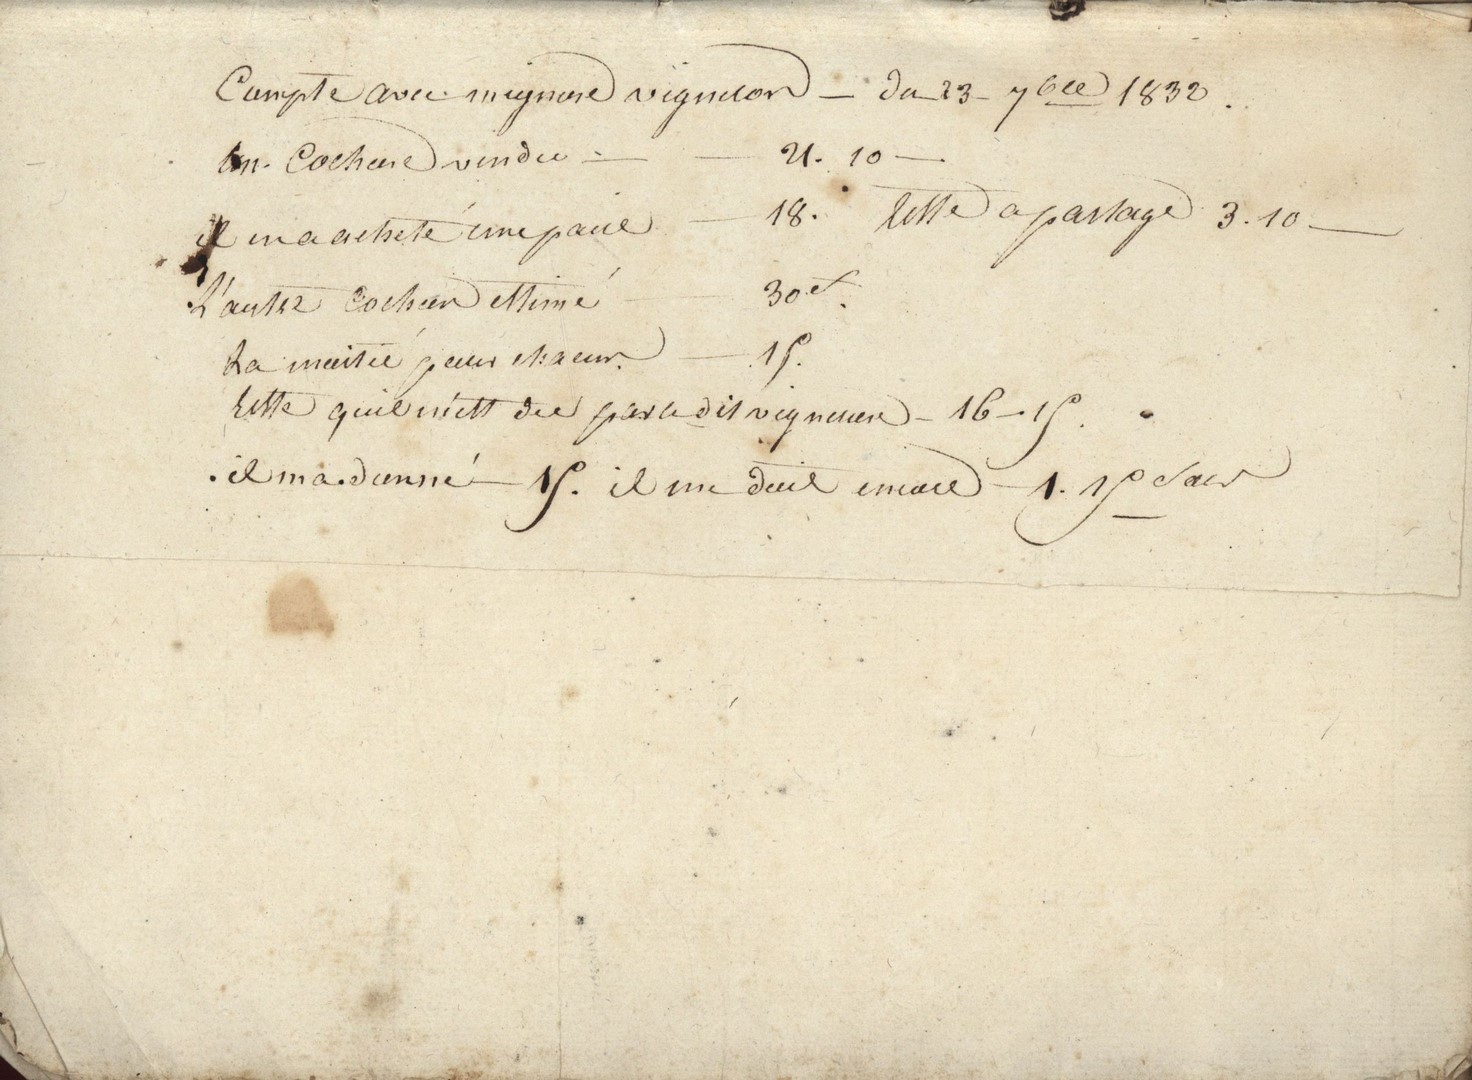 Compte avec mignore vigneron – du 23 7bre 1832.
un Cochare vendu – 21. 10 –
il ma acheté une paire – 18. reste a partage 3. 10 –
L'autre Cochon estimé 30 et.
La moitié pour chacun. – 15.
reste quil mest du par le dit vigneron – 16 – 15.
il ma donné – 15. il me doit encore – 1. 15 sous